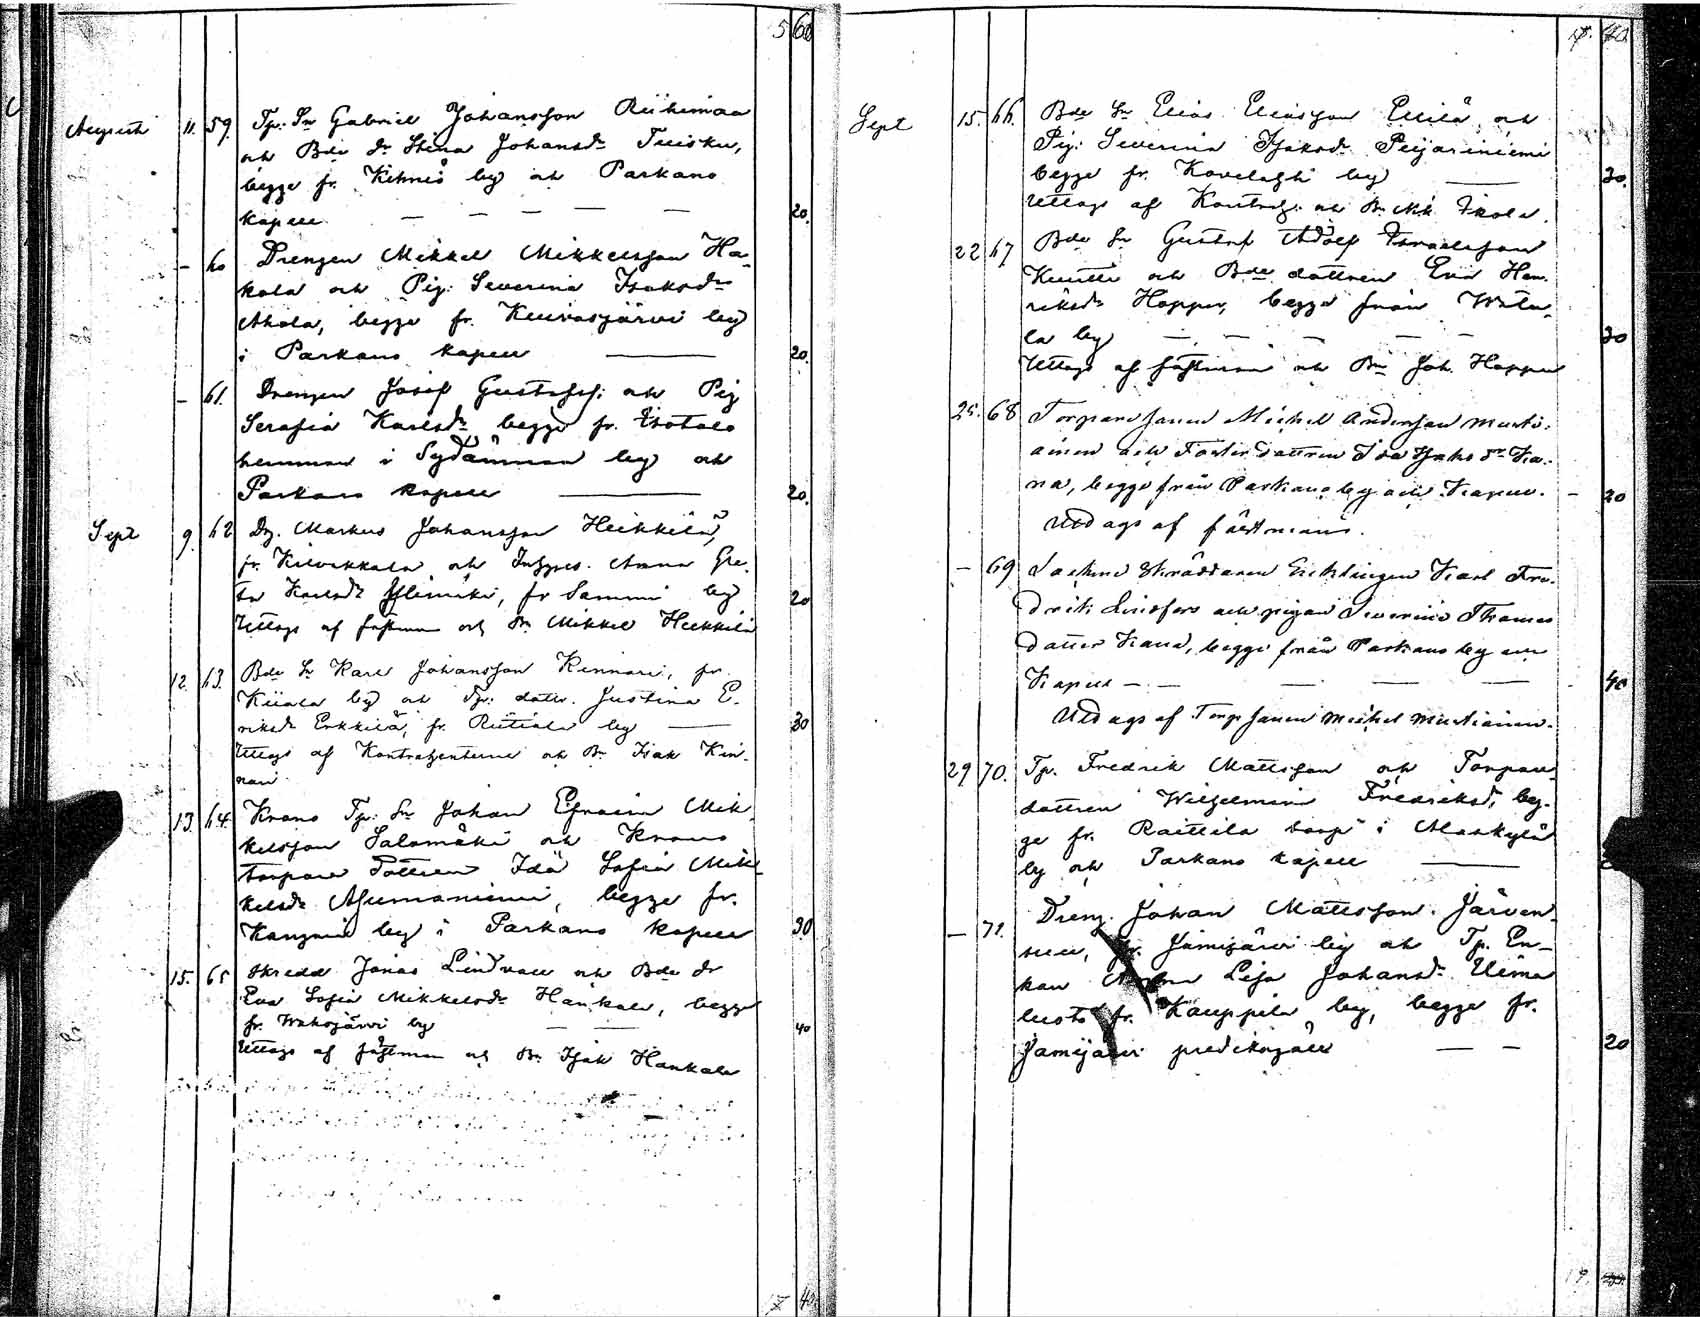 5 60
Augusti 11. 59. Tp. Sn Gabriel Johansson Riihimaa
och Bde dr Stina Johansdr Tuisku,
begge fr. Kihniö by och Parkano
kapell — — — — — 20.
— 60 Drengen Mikkel Mikkelsson Ha-
kola och Pig. Severina Isaksdr
Ahola, begge fr. Kuivasjärvi by
i Parkano kapell — 20.
— 61. Drengen Josef Gustafss: och Pig
Serafia Karlsdr begge fr. Isotalo
hemman i Sydänmaa by och
Parkano kapell — 20.
Sept 9. 62 Dg. Markus Johansson Heikkilä,
fr. Kilvakkala och Inhyses. Anna Gre-
ta Karlsdr Ylimäki, fr Sammi by 20
Uttogs af fästman och Bn Mikkel Heikkilä
12. 63. Bde Sn Karl Johansson Kinnari, fr.
Kiiala by och Tp. dottr. Justina E-
riksdr Erkkilä, fr. Riitiala by — 30
Uttogs af Kontrahenterna och Bn Isak Kin-
nari
13. 64. Krono Tp. Sn Johan Efraim Mik-
kelsson Salomäki och Krono
torpare dottren Ida Sofia Mik-
kelsdr Asumaniemi, begge fr.
by i Parkano kapell 30
15. 65 Skredd Jonas Lindvall och Bde dr
Eva Sofia Mikkelsdr Hankala, begge
fr. Wahojärvi by — — 40
Uttogs af fästman och Bn Isak Hankala
17 40.
17. 40.
Sept 15. 66. Bde Sn Elias Eliasson Eliilä och
Pig: Severina Isaksdr Peijariniemi
begge fr. Kovelahti by — 30.
Uttogs af Kontrah. och Bn Mik. Ikola.
22 67 Bde Sn Gustaf Adolf Israelsson
Kuutti och Bde dottren Eva Hen-
riksdr Hoppu, begge från Watu-
la by — — — — — 30
Uttogs af fästman och Bn Joh. Hoppu
25. 68 Torparesonen Michel Andersson Musti-
ainen och Fosterdottren Ida Isaksdr Ka-
na, begge från Parkano by och Kapell. — 20
Utdags af fästman.
— 69 Sockne Skräddaren Enklingen Karl Fre-
drik Lindfors och pigan Severina Thomas
dotter Kana, begge från Parkano by och
Kapell — — — — — 40
Utdags af Torpsonen Michel Mustiainen.
29 70. Tp. Fredrik Mattsson och Torpare
dottren Wilhelmina Fredriksd, beg-
ge fr. Raittila torp i Alaskylä
by och Parkano kapell —
— 71. Dreng. Johan Mattsson Järven-
suu, fr. Jämijärvi by och Tp. En-
kan Anna Lisa Johansdr
fr. Kauppila by, begge fr.
Jämijärvi predikogäll — — 20
19.